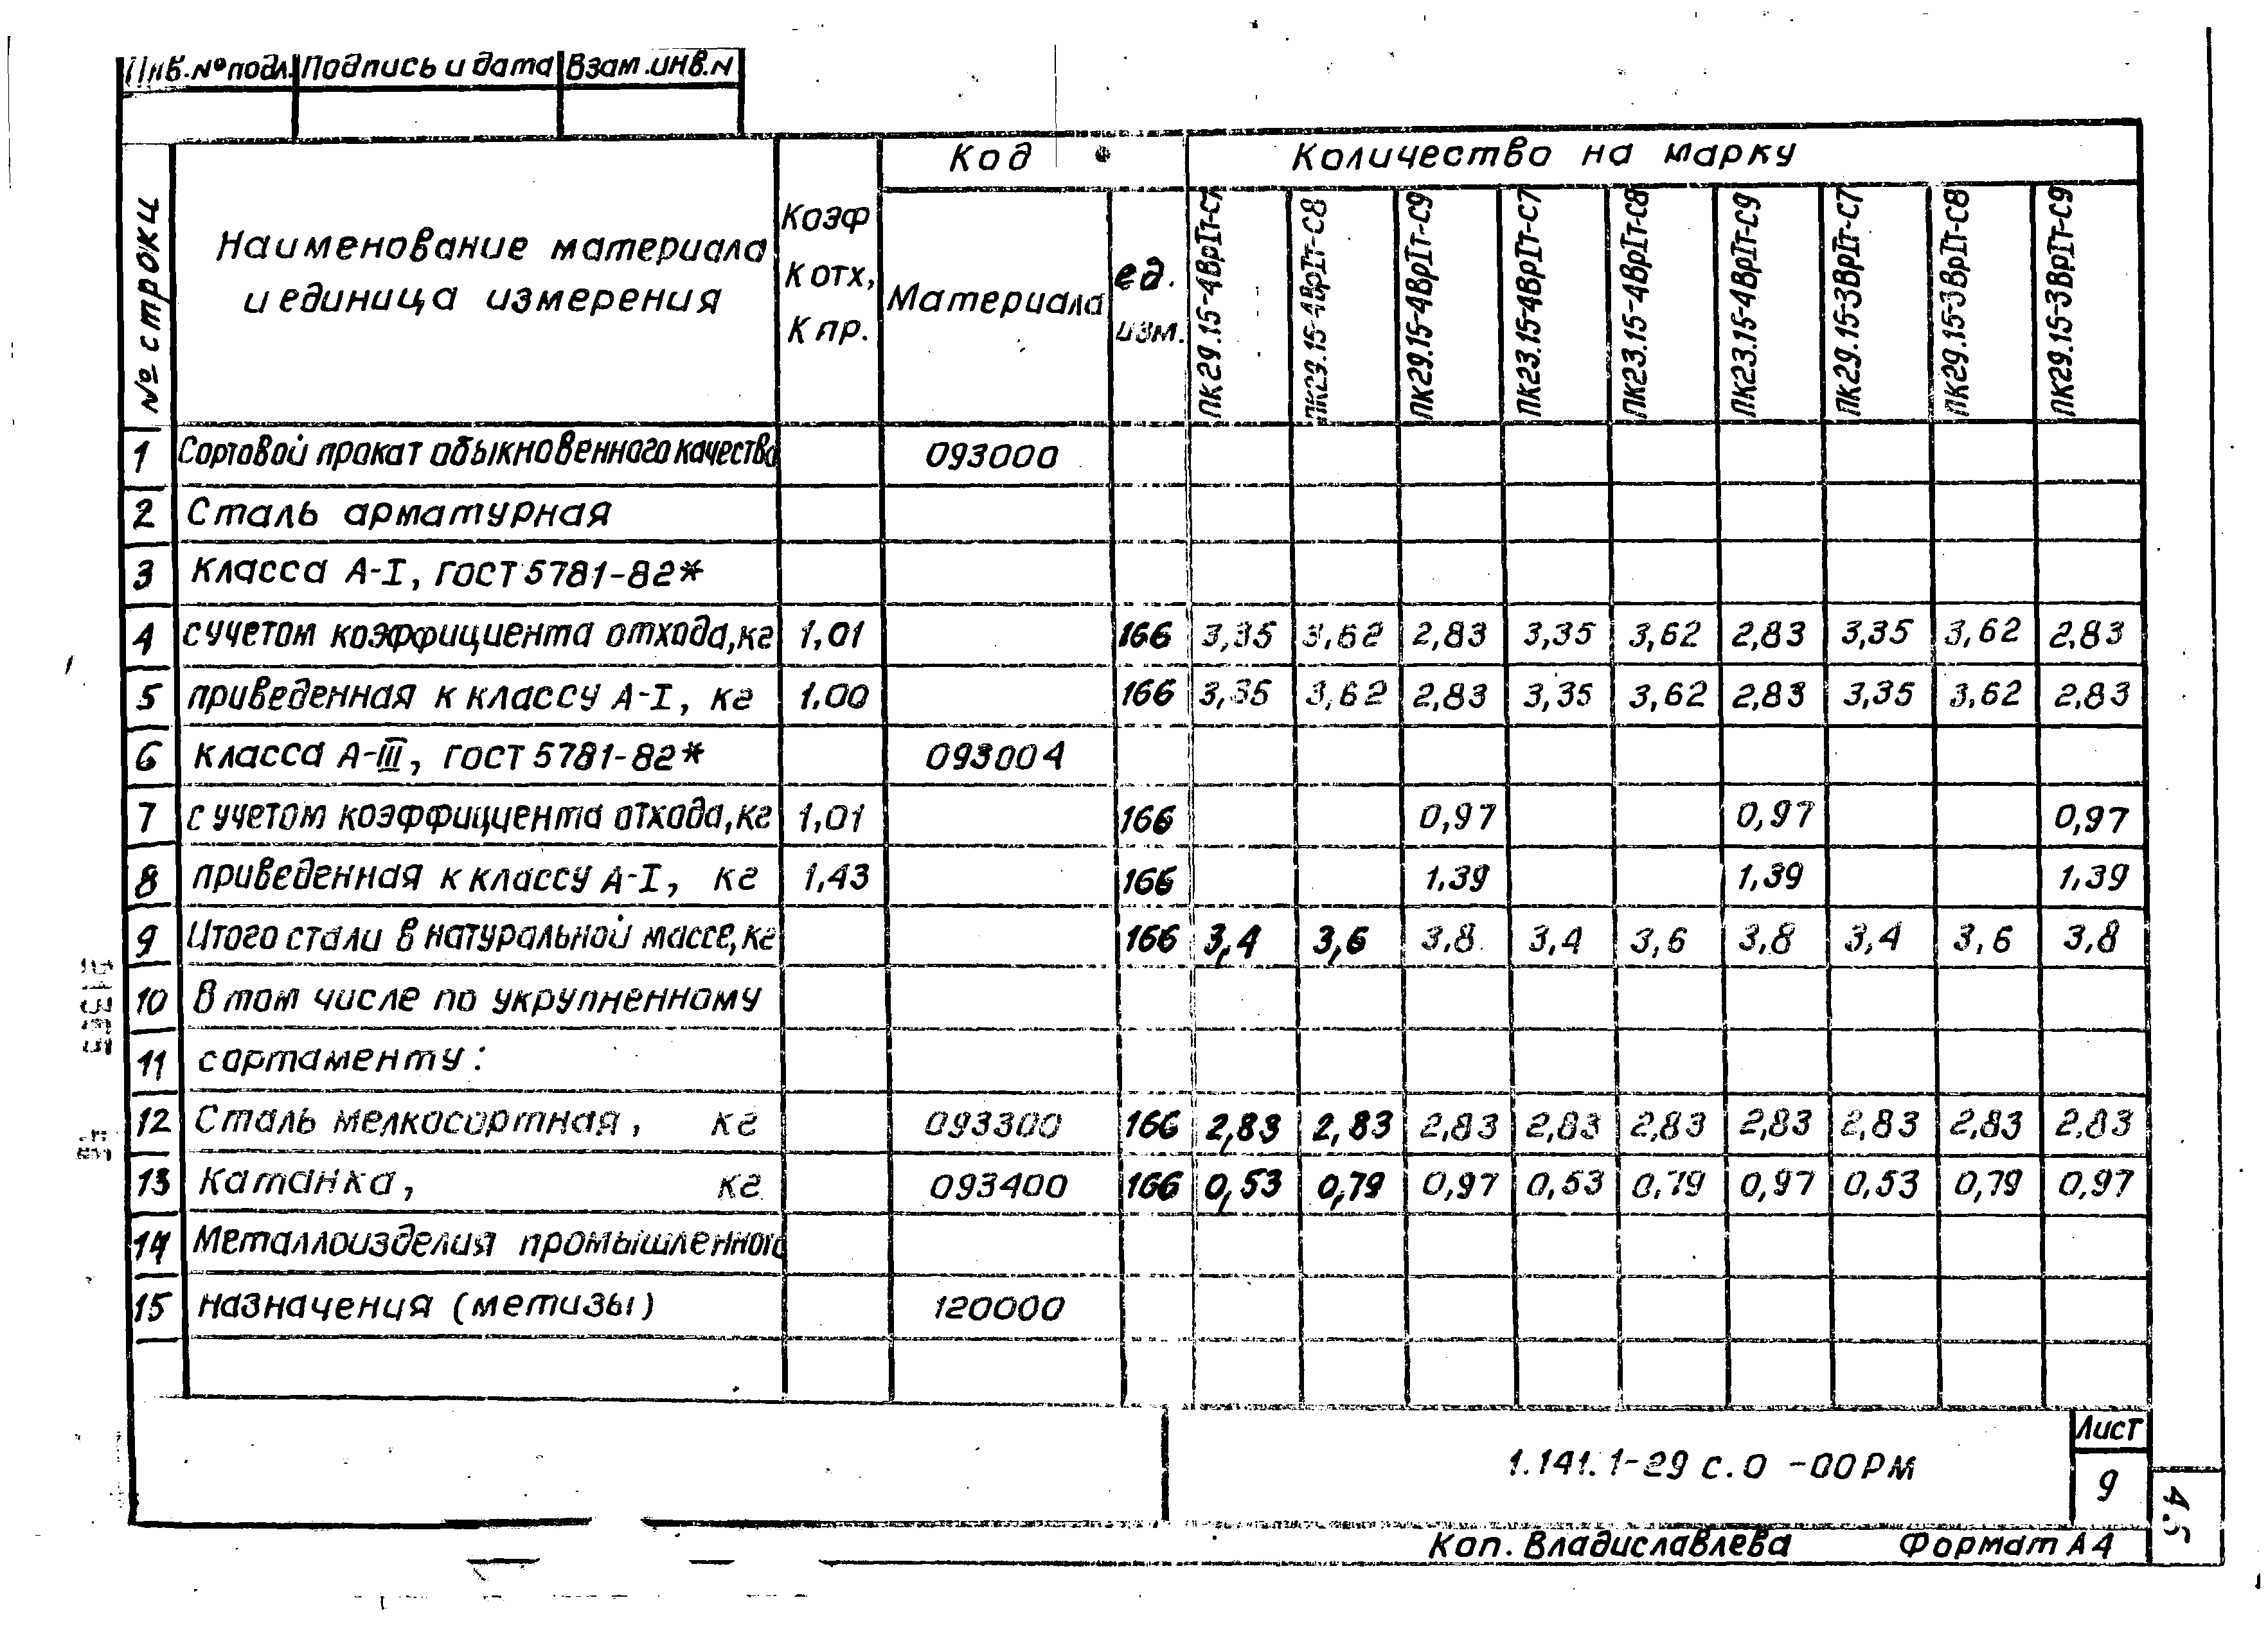 Инв.№подл. Подпись и дата Взам.инв.N
№ строки Наименование материала и единица измерения Коэф К отх, К пр. Код Количество на марку
Материала ед. изм. ПК29.15-4ВрIт-С7 ПК29.15-4ВрIт-С8 ПК29.15-4ВрIт-С9 ПК23.15-4ВрIт-С7 ПК23.15-4ВрIт-С8 ПК23.15-4ВрIт-С9 ПК29.15-3ВрIт-С7 ПК29.15-3ВрIт-С8 ПК29.15-3ВрIт-С9
1 Сортовой прокат обыкновенного качества 093000
2 Сталь арматурная
3 класса А-I, ГОСТ 5781-82*
4 с учетом коэффициента отхода,кг 1,01 166 3,35 3,62 2,83 3,35 3,62 2,83 3,35 3,62 2,83
5 приведенная к классу А-I, кг 1.00 166 3,35 3,62 2,83 3,35 3,62 2,83 3,35 3,62 2,83
6 класса А-III, ГОСТ 5781-82* 093004
7 с учетом коэффициента отхода,кг 1,01 166 0,97 0,97 0,97
8 приведенная к классу А-I, кг 1,43 166 1,39 1,39 1,39
9 Итого стали в натуральной массе,кг 166 3,4 3,6 3,8 3,4 3,6 3,8 3,4 3,6 3,8
10 В том числе по укрупненному
11 сортаменту:
12 Сталь мелкосортная, кг 093300 166 2,83 2,83 2,83 2,83 2,83 2,83 2,83 2,83 2,83
13 Катанка, кг 093400 166 0,53 0,79 0,97 0,53 0,79 0,97 0,53 0,79 0,97
14 Металлоизделия промышленного
15 назначения (метизы) 120000
1.141.1-29 с.0 -00РМ
Лист
9
45
Коп. Владиславлева Формат А4